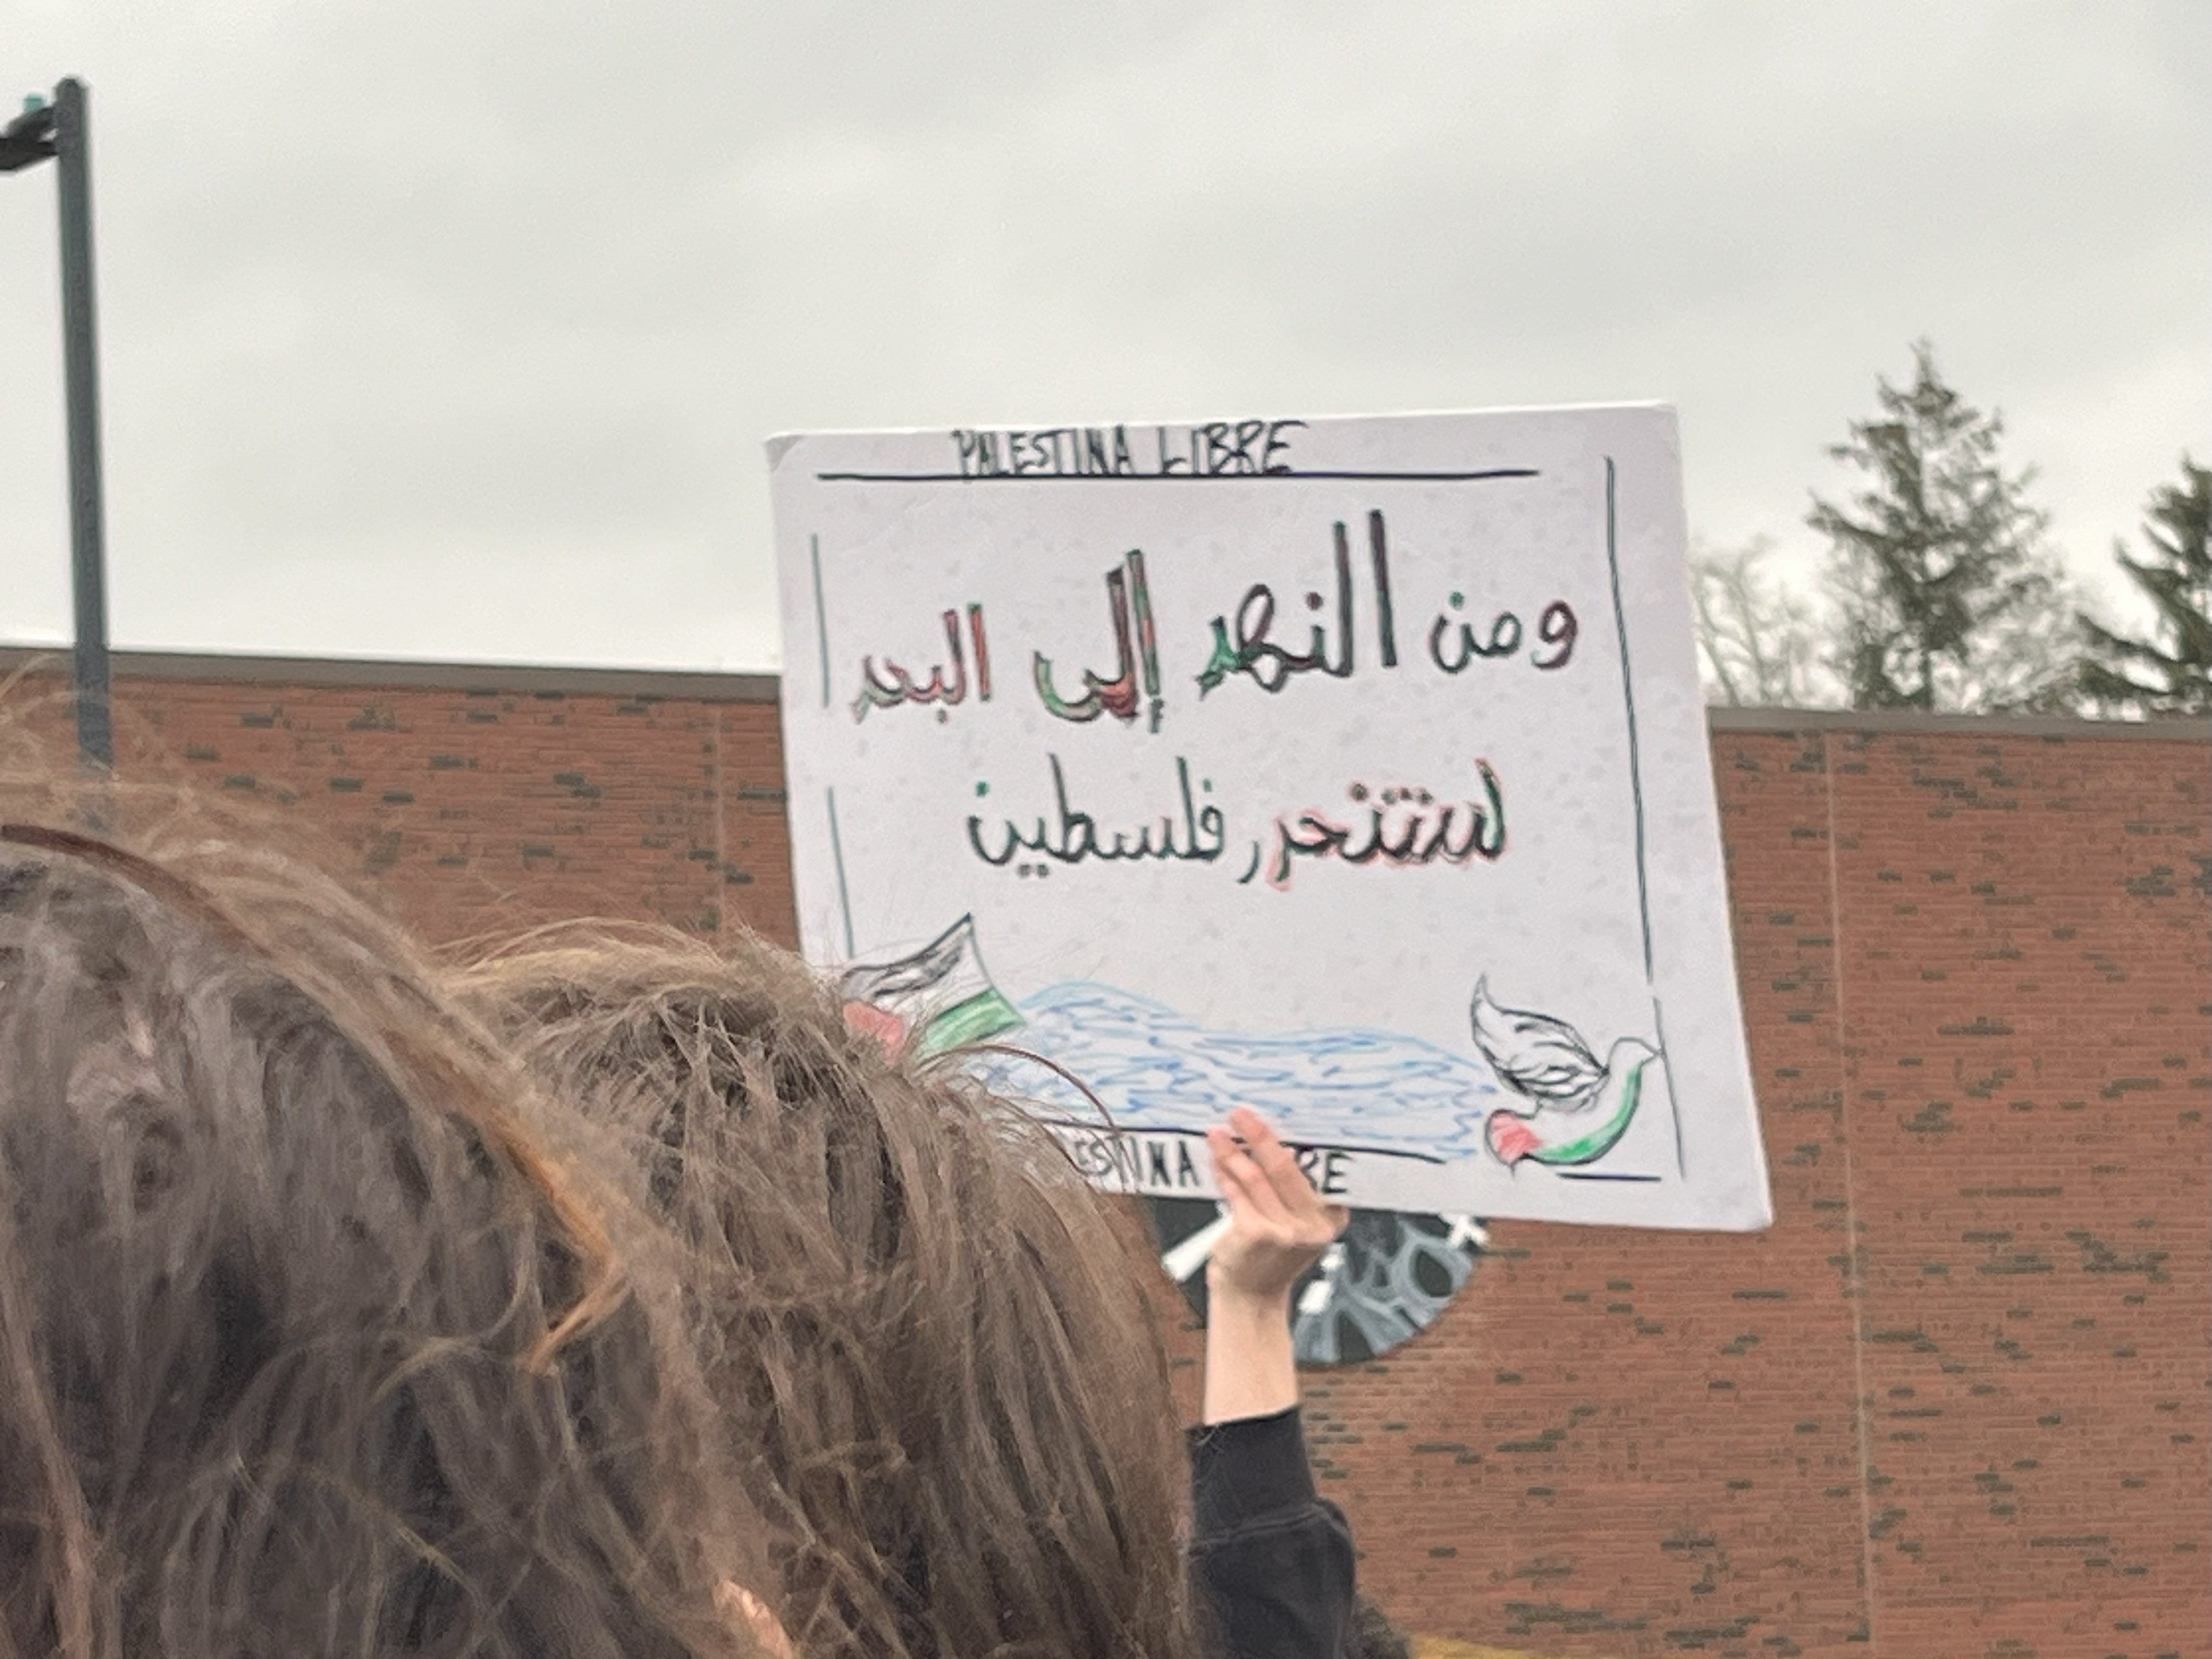 PALESTINA LIBRE
ومن النهر إلى البحر
لستتحرر فلسطين
ESTINA RE